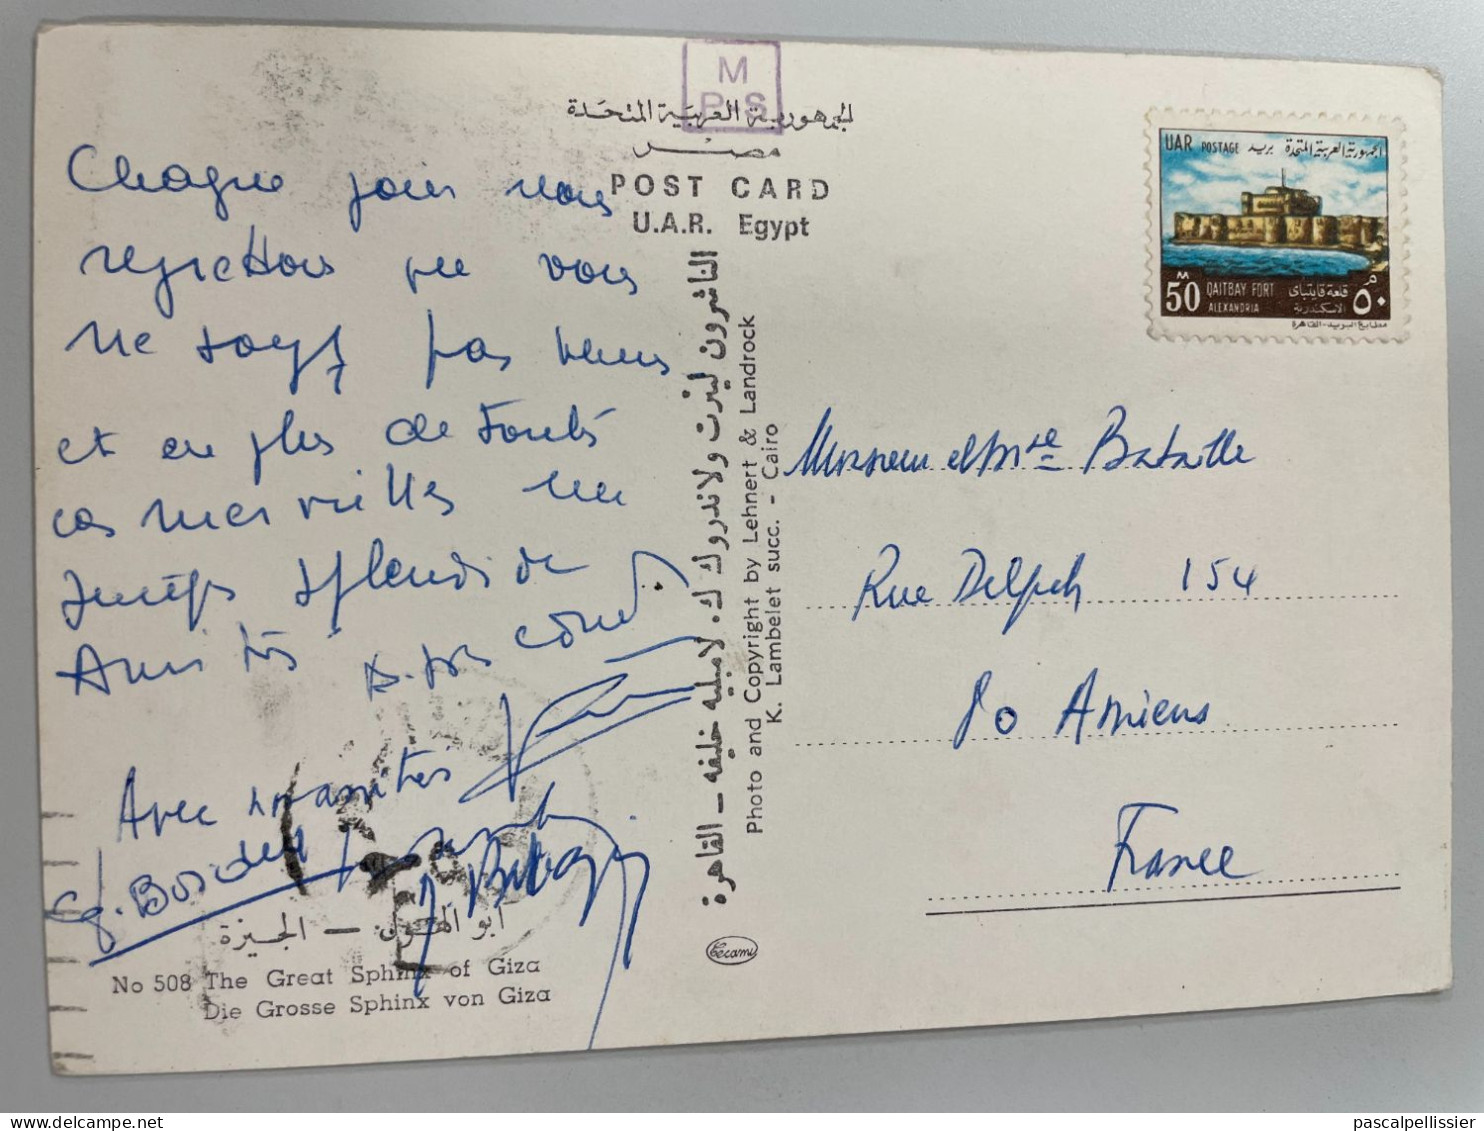 M
P S
الجمهورية العربية المتحدة
مصر
POST CARD
U.A.R. Egypt
Chaque jour nous
regrettons que vous
ne soyez pas venus
et en plus de toutes
ces merveilles un
temps splendide
Amitiés à tous
Avec nos amitiés
أبو الهول - الجيزة
No 508 The Great Sphinx of Giza
Die Grosse Sphinx von Giza
الناشرون لينرت ولاندروك ك. لامبليه خليفه - القاهرة
Photo and Copyright by Lehnert & Landrock
K. Lambelet succ. - Cairo
Cecami
UAR POSTAGE بريد الجمهورية العربية المتحدة
MM 50 QAITBAY FORT قلعة قايتباى ٥٠ م
ALEXANDRIA الاسكندرية
مطابع البريد - القاهرة
Monsieur et Mme Bataille
Rue Delpech 154
80 Amiens
France
pascalpellissier